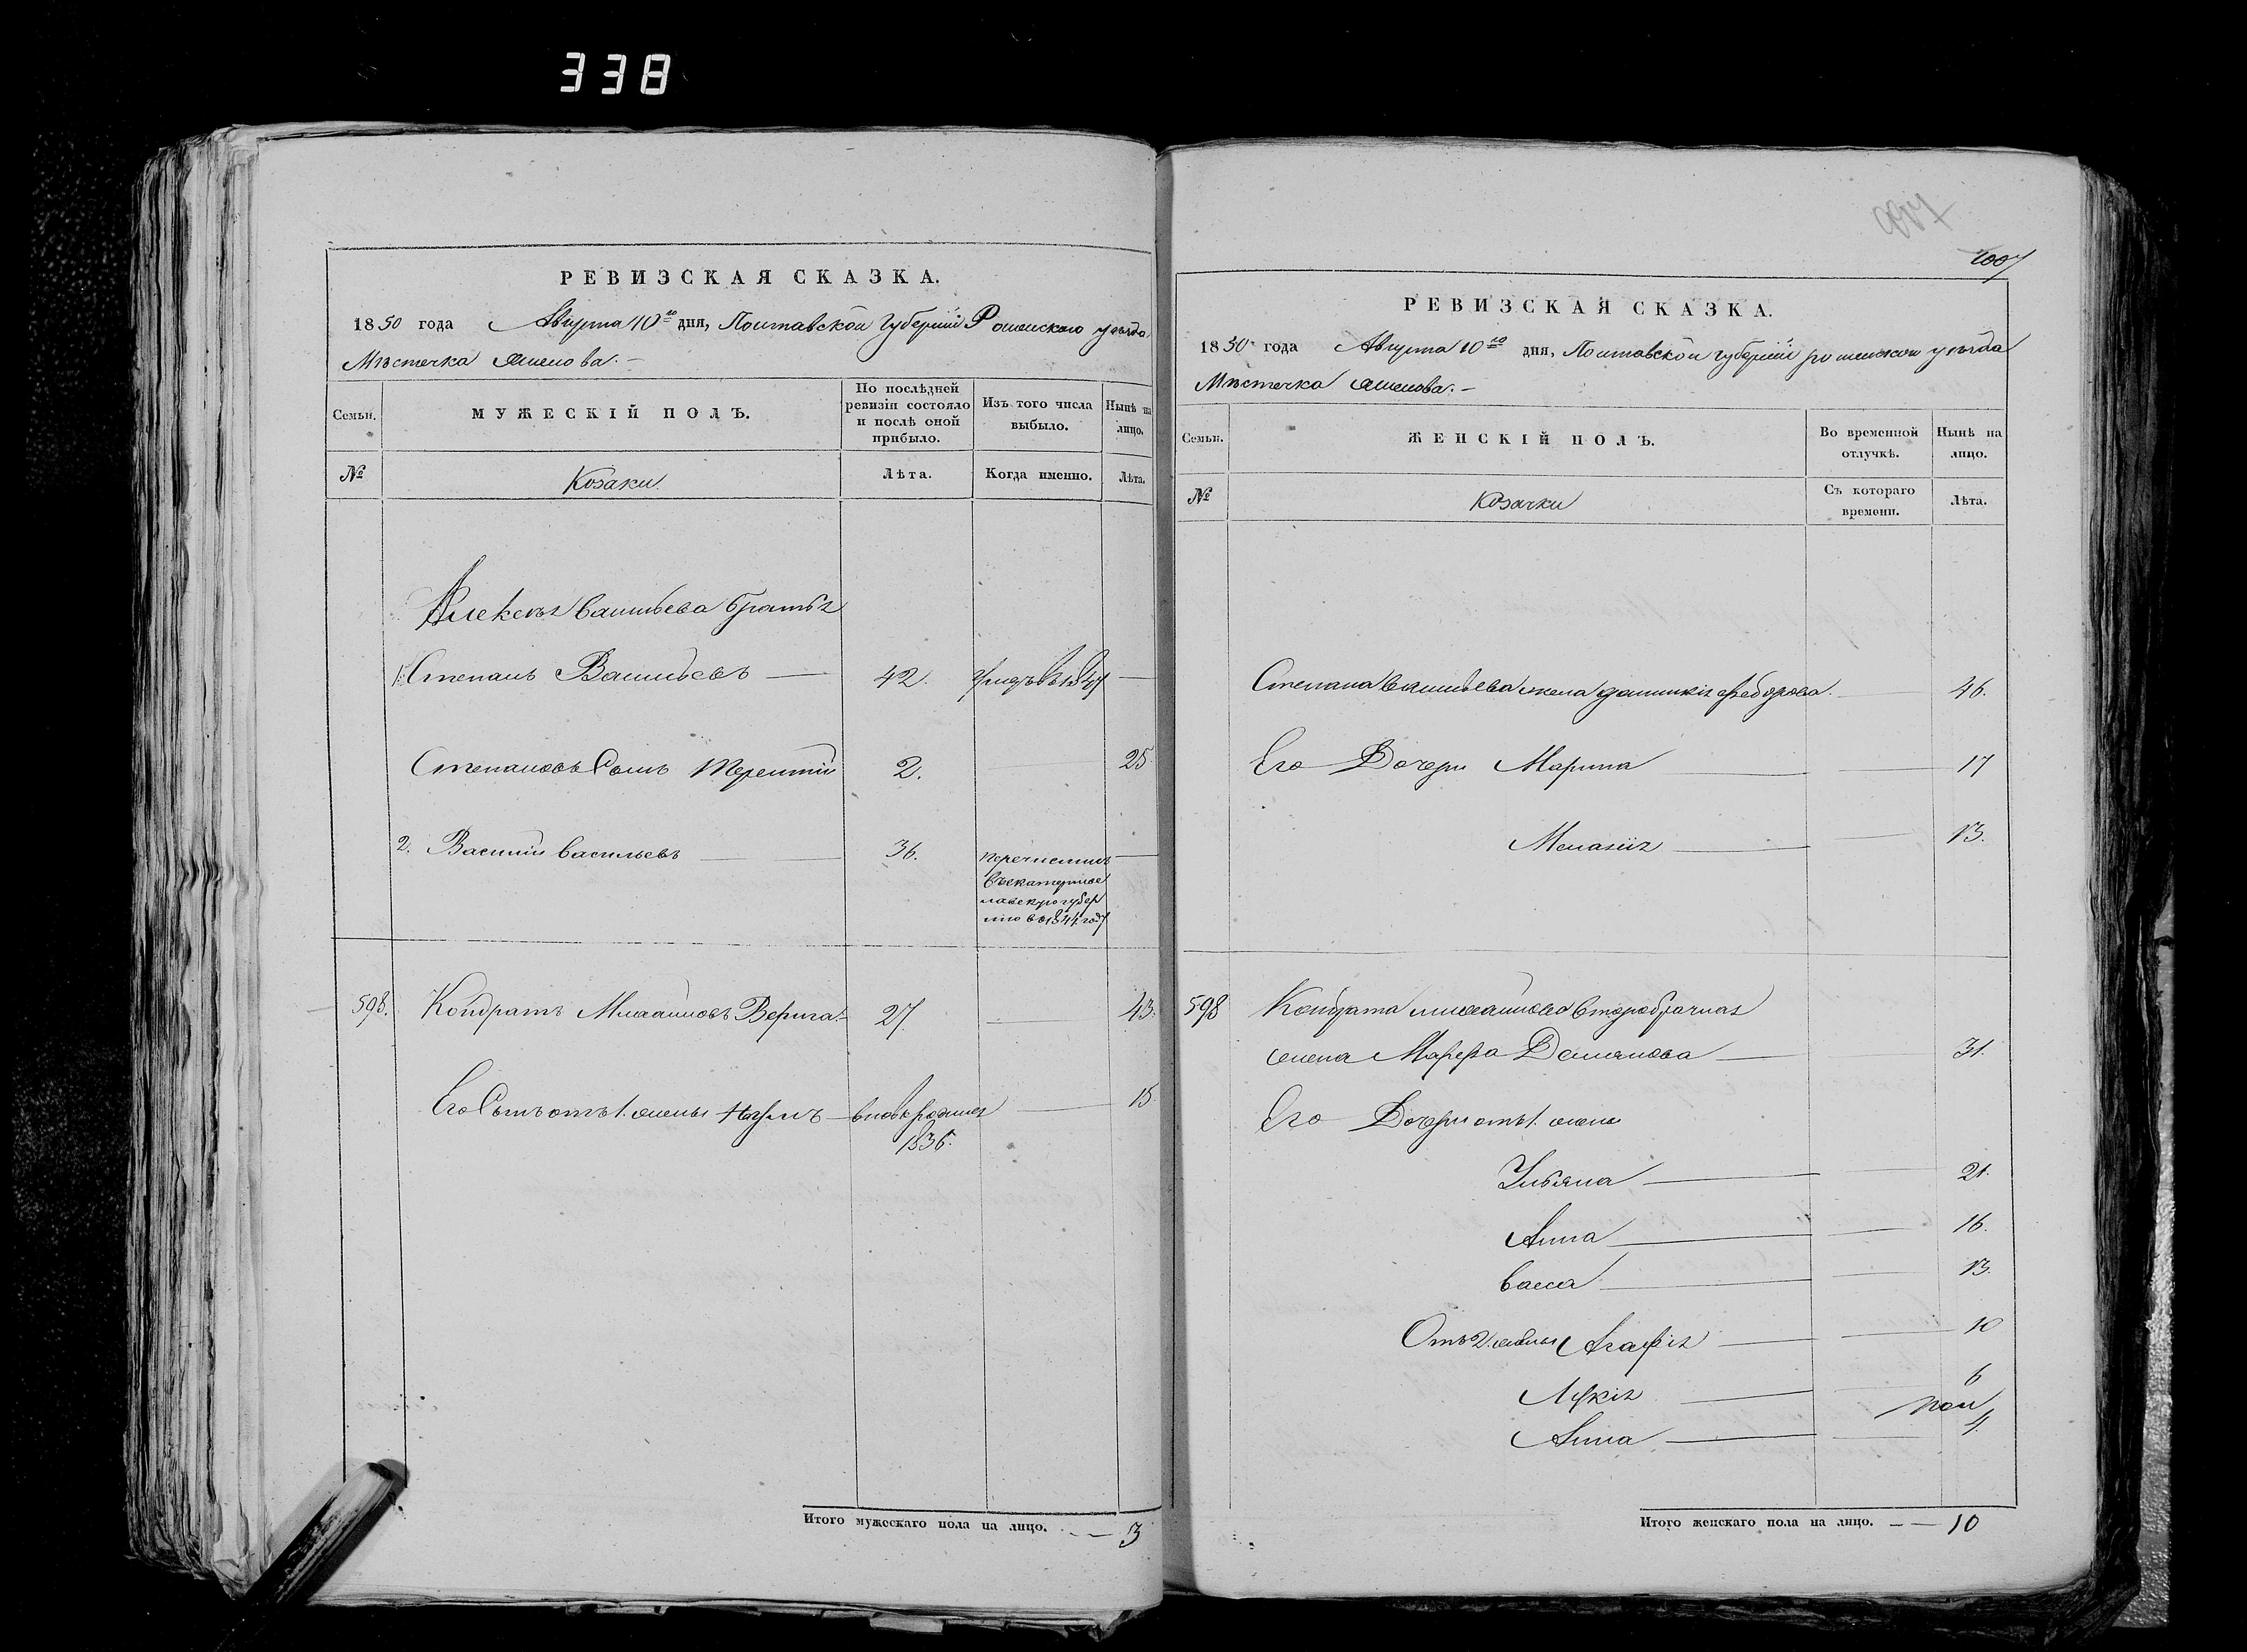 338
РЕВИЗСКАЯ СКАЗКА.
1850 года Августа 10го дня, Полтавской Губернии Роменского уезда
Местечка Смелова.-
Семьи.
МУЖЕСКІЙ ПОЛЪ.
По послѣдней ревизіи состояло и послѣ оной прибыло.
Изъ того числа выбыло.
Нынѣ на лицо.
№
Козаки
Лѣта.
Когда именно.
Лѣта.
Алексея Васильева братья
1. Степанъ Васильевъ — 42. —
Степановъ Сынъ Терентий 2. 25
2. Василий Васильевъ — 36. перечисленъ —
въ Екатерино
славскую губер
нию в 1844 году
598. Кондратъ Михайловъ Верига.- 27. — 43.
Его Сынъ отъ 1. жены Наумъ — вновь родился — 15
1836.
Итого мужескаго пола на лицо. — 3
1007
РЕВИЗСКАЯ СКАЗКА.
1850 года Августа 10го дня, Полтавской губернии роменского уезда
Местечка Смелова.-
Семьи.
ЖЕНСКІЙ ПОЛЪ.
Во временной отлучкѣ.
Нынѣ на лицо.
№
Козачки
Съ котораго времени.
Лѣта.
Степана Васильева жена Федорова. — 46.
Его Дочери Марина — 17
Меланія — 13.
598 Кондрата Михайлова второбрачная
жена Марфа Демянова — 31.
Его Дочери отъ 1. жены
Ульяна — 21.
Анна — 16.
Васса — 13.
Отъ 2. жены Агафія — 10
Лукія — 6
Анна — 4.
Итого женскаго пола на лицо. — 10